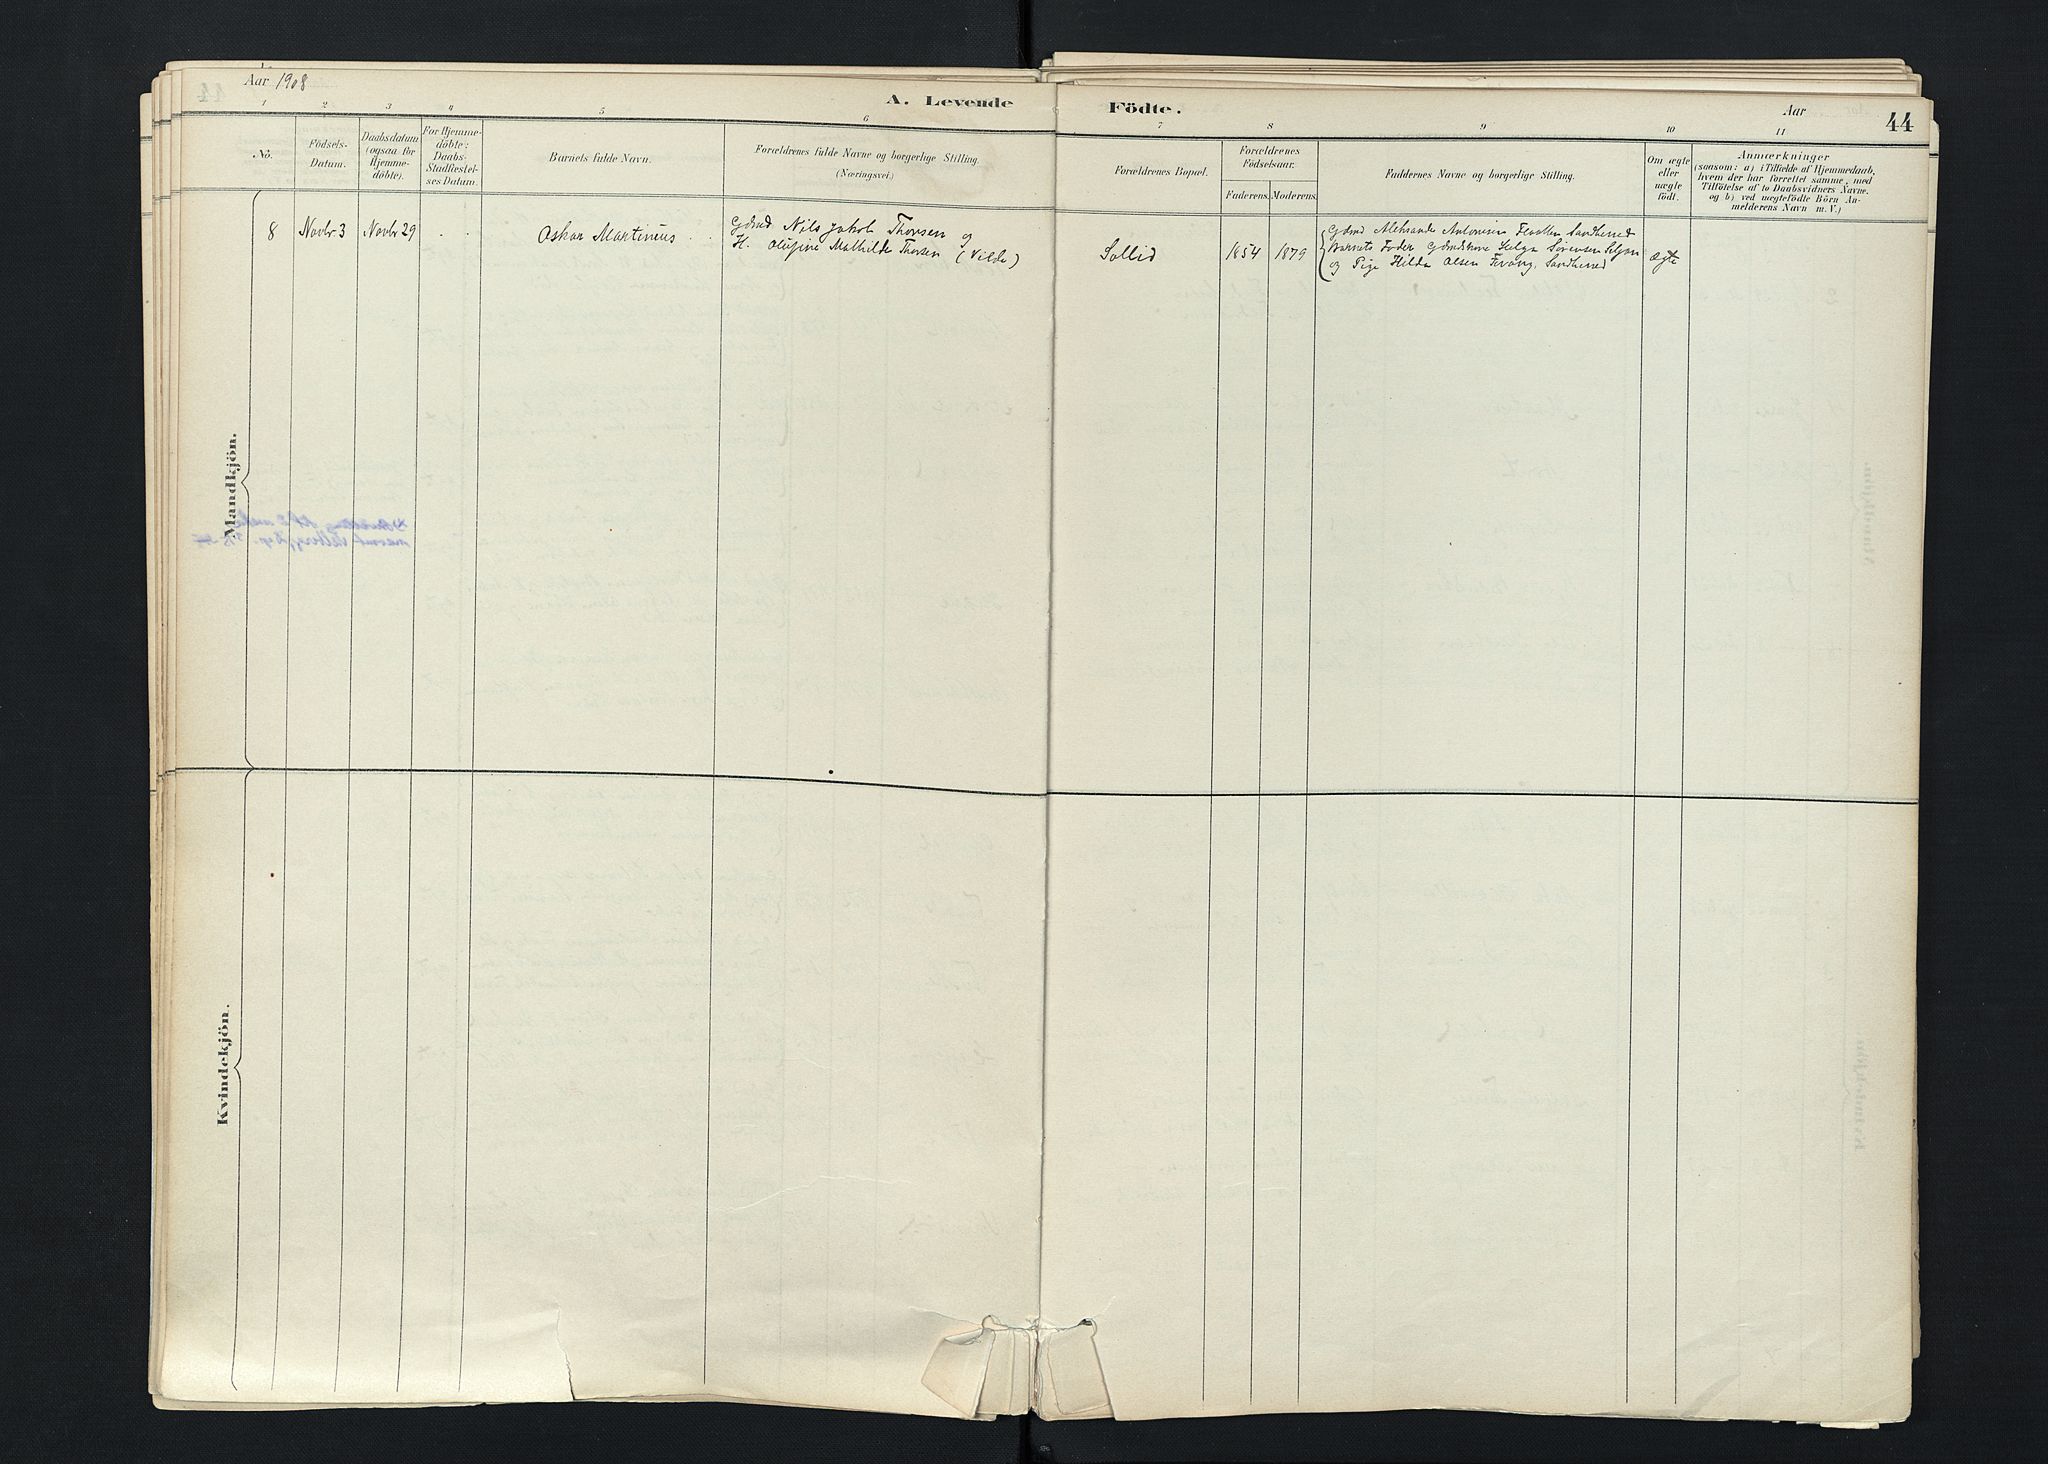 Aar 1908
A. Levende
Födte.
Aar
44
1 2 3 4 5 6 7 8 9 10 11
No.
Födsels-
Datum.
Daabsdatum
(ogsaa for
Hjemme-
döbte).
For Hjemme-
döbte:
Daabs-
Stadfæstel-
ses Datum.
Barnets fulde Navn.
Forældrenes fulde Navne og borgerlige Stilling.
(Næringsvei.)
Forældrenes Bopæl.
Forældrenes
Födselsaar.
Faderens. Moderens.
Faddernes Navne og borgerlige Stilling.
Om ægte
eller
uægte
født.
Anmærkninger
(saasom: a) i Tilfælde af Hjemmedaab,
hvem der har forrettet samme, med
Tilföielse af to Daabsvidners Navne.
og b) ved uægtefödte Börn An-
melderens Navn m. V.)
Mandkjön.
8 Novbr 3 Novbr 29 . . Oskar Martinius . .
Gdmd Nils Jakob Thorsen og
H. Olufine Mathilde Thorsen (Vilde)
Sollid 1854 1879
Gdmd Aleksander Antonisen Sandherred
Barnets Fader Gdmdskone Helga Sørensen
og Pige Hilda Olsen Fevang, Sandherred
Ægte
Kvindekjön.